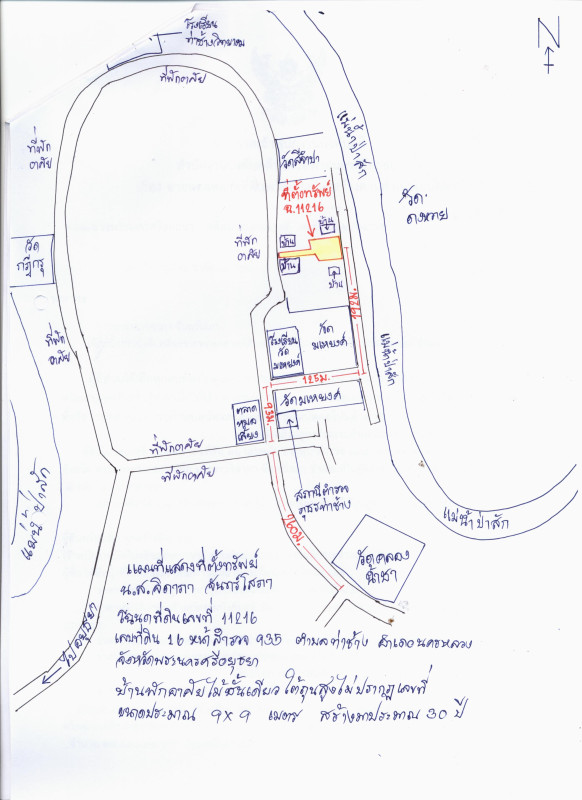 N
โรงเรียน
ท่าช้างวิทยาคม
ที่พักอาศัย
ที่พัก
อาศัย
แม่น้ำป่าสัก
วัดสีจำปา
ที่ตั้งทรัพย์
ฉ.11216
วัด
ดงหวาย
บ้าน
บ้าน
บ้าน
บ้าน
ที่พัก
อาศัย
วัด
กุฎีกรุ
ที่พัก
อาศัย
192ม.
โรงเรียน
วัด
มเหยงค์
วัด
มเหยงค์
แม่น้ำป่าสัก
125ม.
วัดมเหยงค์
93ม.
ตลาด
ที่พักอาศัย
ที่พักอาศัย
สถานีตำรวจ
ภูธรท่าช้าง
แม่น้ำป่าสัก
แม่น้ำป่าสัก
760ม.
วัดคลอง
น้ำชา
ไปอยุธยา
แผนที่แสดงที่ตั้งทรัพย์
น.ส.ลิดาภา จันทร์โสดา
โฉนดที่ดินเลขที่ 11216
เลขที่ดิน 16 หน้าสำรวจ 935 ตำบลท่าช้าง อำเภอนครหลวง
จังหวัดพระนครศรีอยุธยา
บ้านพักอาศัยไม้ชั้นเดียว ใต้ถุนสูงไม่ปรากฏเลขที่
ขนาดประมาณ 9x9 เมตร สร้างมาประมาณ 30 ปี